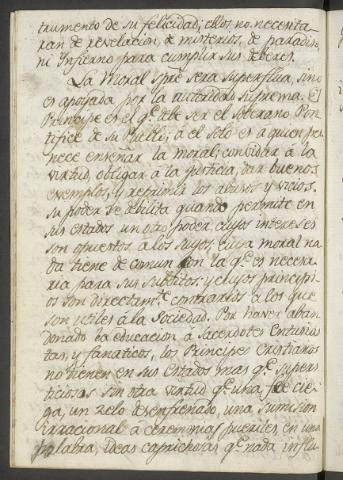 trumento de su felicidad; ellos no necesita-
ran de revelacion, de misterios, de paradiso,
ni Infierno para cumplir sus deberes.
La Moral spre sera superflua, sino
es apoyada por la autoridad suprema. El
Principe es el qe debe ser el soberano Pon-
tifice de su Pueblo; á el solo es a quien per
nece enseñar la moral; convidar á la
virtud, obligar á la justicia, dar buenos
exemplos, y reprimir los abusos y vicios.
Su poder se debilita quando permite en
sus estados un otro poder, cuyos intereses
son opuestos á los suyos, cuya moral na
da tiene de comun con la qe es necesa
ria para sus subditos, y cuyos principi-
os son directamte contrarios á los que
son utiles á la Sociedad. Por haver aban
donado la educacion á Sacerdotes Enturias
tas, y fanaticos, los Principes Cristianos
no tienen en sus estados mas qe supers
ticiosos sin otra virtud qe una fee cie-
ga, un zelo desenfrenado, una sumision
irracional á ceremonias pueriles, en una
palabra, ideas caprichosas qe nada influ